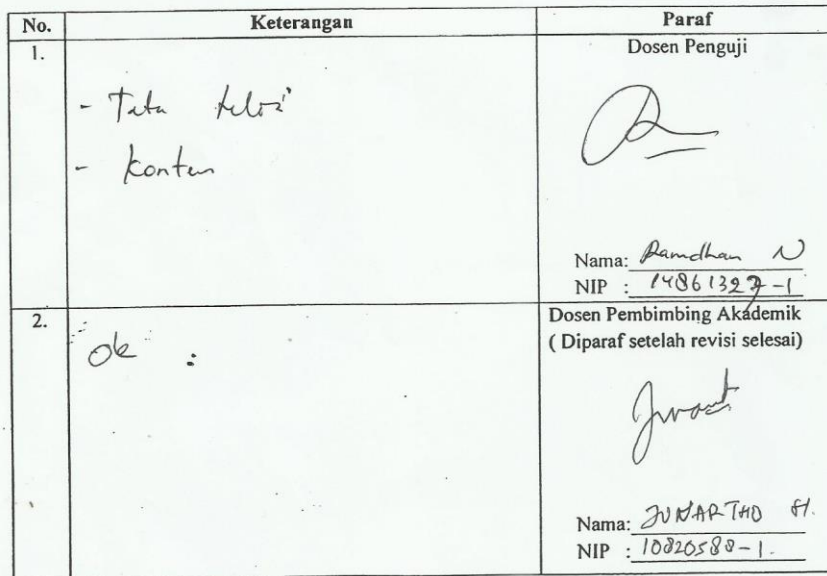 No. Keterangan Paraf
1. Dosen Penguji
- Tata tulis
- Konten
Nama: Ramdhan N
NIP : 14861327-1
2. Dosen Pembimbing Akademik
( Diparaf setelah revisi selesai)
Ok :
Nama: JUNARTHO
NIP : 10820588-1.